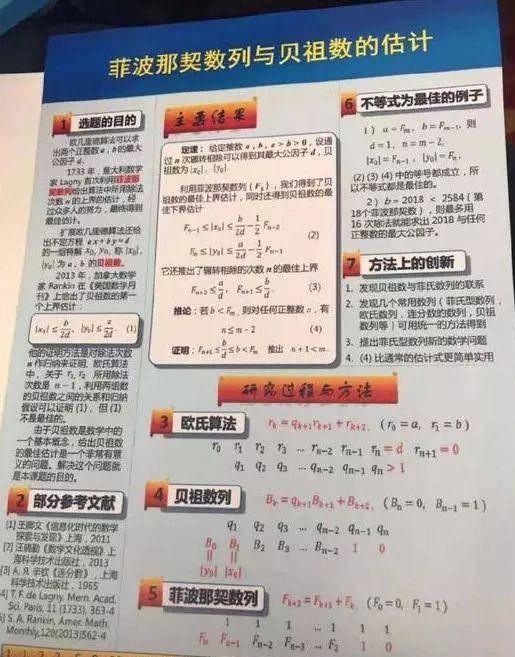 菲波那契数列与贝祖数的估计
1 选题的目的
欧几里德算法可以求
出两个正整数 a , b 的最大
公因子 d.
1733 年,意大利数学
家 Lagny 首次利用菲波那
契数列给出算法中所用除法
次数 n 的上界的估计,经
过众多人的努力,最终得到
最佳估计。
扩展欧几里德算法还给
出不定方程 ax+by=d
的一组特解 x₀, y₀, 称 |x₀|,
|y₀| 为 a, b 的贝祖数。
2013 年,加拿大数学
家 Rankin 在《美国数学月
刊》上给出了贝祖数的第一
个上界估计:
|x₀| ≤ b/2d, |y₀| ≤ a/2d. (1)
他的证明方法是对除法次数
n 作归纳来证明, 欧几里德算法
中,关于 r₁, r₂ 所用除法
次数是 n − 1,利用两组数
的贝祖数之间的关系和归纳
假设可以证明 (1), 但 (1)
不是最佳的。
由于贝祖数是数学中的
一个基本概念,给出贝祖数
的最佳估计是一个非常有意
义的问题。解决这个问题就
是本课题的目的。
2 部分参考文献
[1] 王卿文《信息化时代的数学
探索与发现》上海,2011
海科学技术出版社,2013
[3] А. Я. 辛钦《连分数》,上海
科学技术出版社,1965
4] T. F. de Lagny. Mem. Acad.
Sci. Paris, 11 (1733), 363-4
5] S. A. Rankin, Amer. Math.
Monthly,120(2013)562-4
主要结果
定理:给定整数 a, b, a > b > 0, 设通
过 n 次辗转相除可以得到其最大公因子 d, 贝
祖数为 |x₀|, |y₀|.
利用菲波那契数列 {Fₖ},我们得到了贝
祖数的最佳上界估计,同时还得到贝祖数的最
佳下界估计
Fₙ₋₁ ≤ |x₀| ≤ b/2d − 1/2 Fₙ₋₂
(2)
Fₙ ≤ |y₀| ≤ a/2d − 1/2 Fₙ₋₁
它还推出了辗转相除的次数 n 的最佳上界
Fₙ₊₂ ≤ a/d, Fₙ₊₁ ≤ b/d. (3)
推论:若 b < Fₘ, 则对任何正整数 a, 有
n ≤ m − 2 (4)
证明:Fₙ₊₁ ≤ b/d ≤ b < Fₘ 推出 n + 1 < m
6 不等式为最佳的例子
1) a = Fₘ, b = Fₘ₋₁, 则
d = 1, n = m − 2,
|x₀| = Fₙ₋₁, |y₀| = Fₙ,
(2) (3) (4) 中的等号都成立,所
以不等式都是最佳的。
2) b = 2018 < 2584(第
18个菲波那契数),则最多用
16 次除法就能求出 2018 与任何
正整数的最大公因子。
7 方法上的创新
1. 发现贝祖数与菲氏数列的联系
2. 发现几个常用数列(菲氏型数列,
欧氏数列,连分数的数列,贝祖
数列等)可用统一的方法得到
3. 提出菲氏型数列新的数学问题
4. (4) 比通常的估计式更简单实用
研究过程与方法
3 欧氏算法 rₖ = qₖ₊₁rₖ₊₁ + rₖ₊₂, (r₀ = a, r₁ = b)
r₀ r₁ r₂ r₃ … rₙ₋₂ rₙ₋₁ rₙ = d rₙ₊₁ = 0
q₁ q₂ q₃ … qₙ₋₂ qₙ₋₁ qₙ > 1
4 贝祖数列 Bₖ = qₖ₊₁Bₖ₊₁ + Bₖ₊₂, (Bₙ = 0, Bₙ₋₁ = 1)
q₁ q₂ q₃ … qₙ₋₂ qₙ₋₁ qₙ
B₀ B₁ B₂ B₃ … Bₙ₋₂ 1 0
|| ||
|y₀| |x₀|
5 菲波那契数列 Fₖ₊₂ = Fₖ₊₁ + Fₖ, (F₀ = 0, F₁ = 1)
1 1 1 … 1 1 1
Fₙ Fₙ₋₁ Fₙ₋₂ Fₙ₋₃ … F₂ 1 0